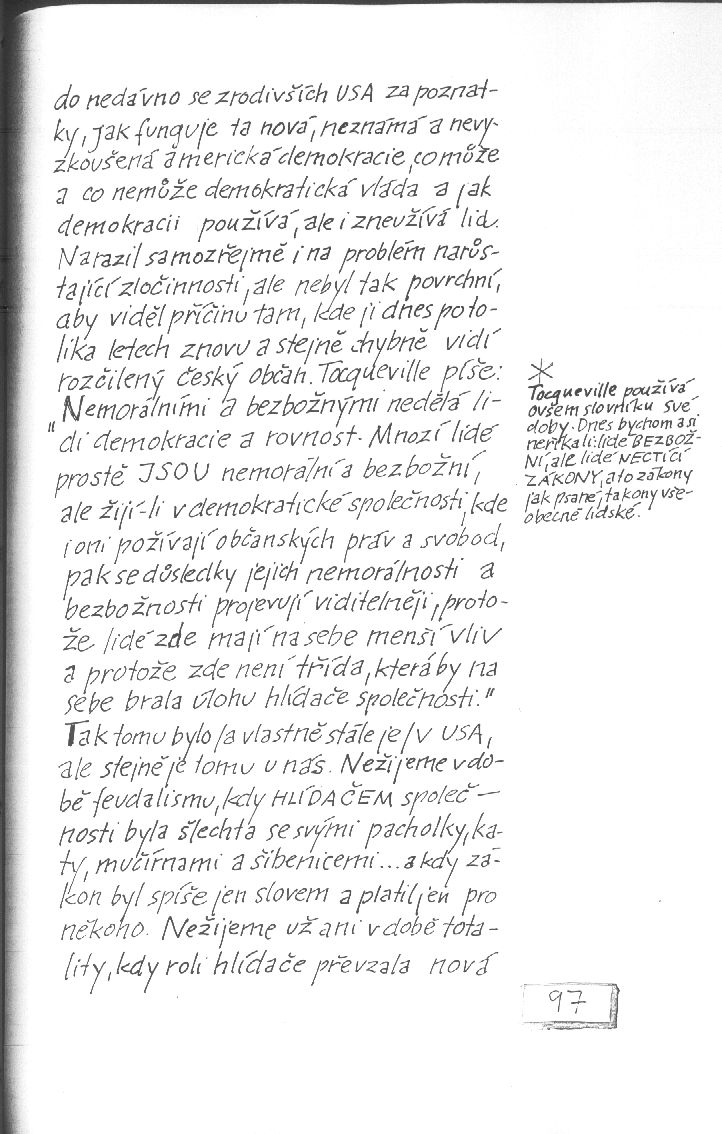 do nedávno se zrodivších USA za poznat-
ky, jak funguje ta nová, neznámá a nevy-
zkoušená americká demokracie, co může
a co nemůže demokratická vláda a jak
demokracii používá, ale i zneužívá lid.
Narazil samozřejmě i na problém narůs-
tající zločinnosti, ale nebyl tak povrchní,
aby viděl příčinu tam, kde ji dnes po to-
lika letech znovu a stejně chybně vidí
rozčilený český občan. Tocqueville píše:
"Nemorálními a bezbožnými nedělá li-
di demokracie a rovnost. Mnozí lidé
prostě JSOU nemorální a bezbožní,
ale žijí-li v demokratické společnosti, kde
i oni požívají občanských práv a svobod,
pak se důsledky jejich nemorálnosti a
bezbožnosti projevují viditelněji, proto-
že lidé zde mají na sebe menší vliv
a protože zde není třída, která by na
sebe brala úlohu hlídače společnosti."
Tak tomu bylo /a vlastně stále je/ v USA,
ale stejně je tomu u nás. Nežijeme v do-
bě feudalismu, kdy HLÍDAČEM společ-
nosti byla šlechta se svými pacholky, ka-
ty, mučírnami a šibenicemi... a kdy zá-
kon byl spíše jen slovem a platil jen pro
někoho. Nežijeme už ani v době tota-
lity, kdy roli hlídače převzala nová
*
Tocqueville používá
ovšem slovníku své
doby. Dnes bychom asi
neříkali: lidé BEZBOŽ-
NÍ, ale lidé NECTÍCÍ
ZÁKONY, a to zákony
jak psané, tak ony vše-
obecně lidské.
97